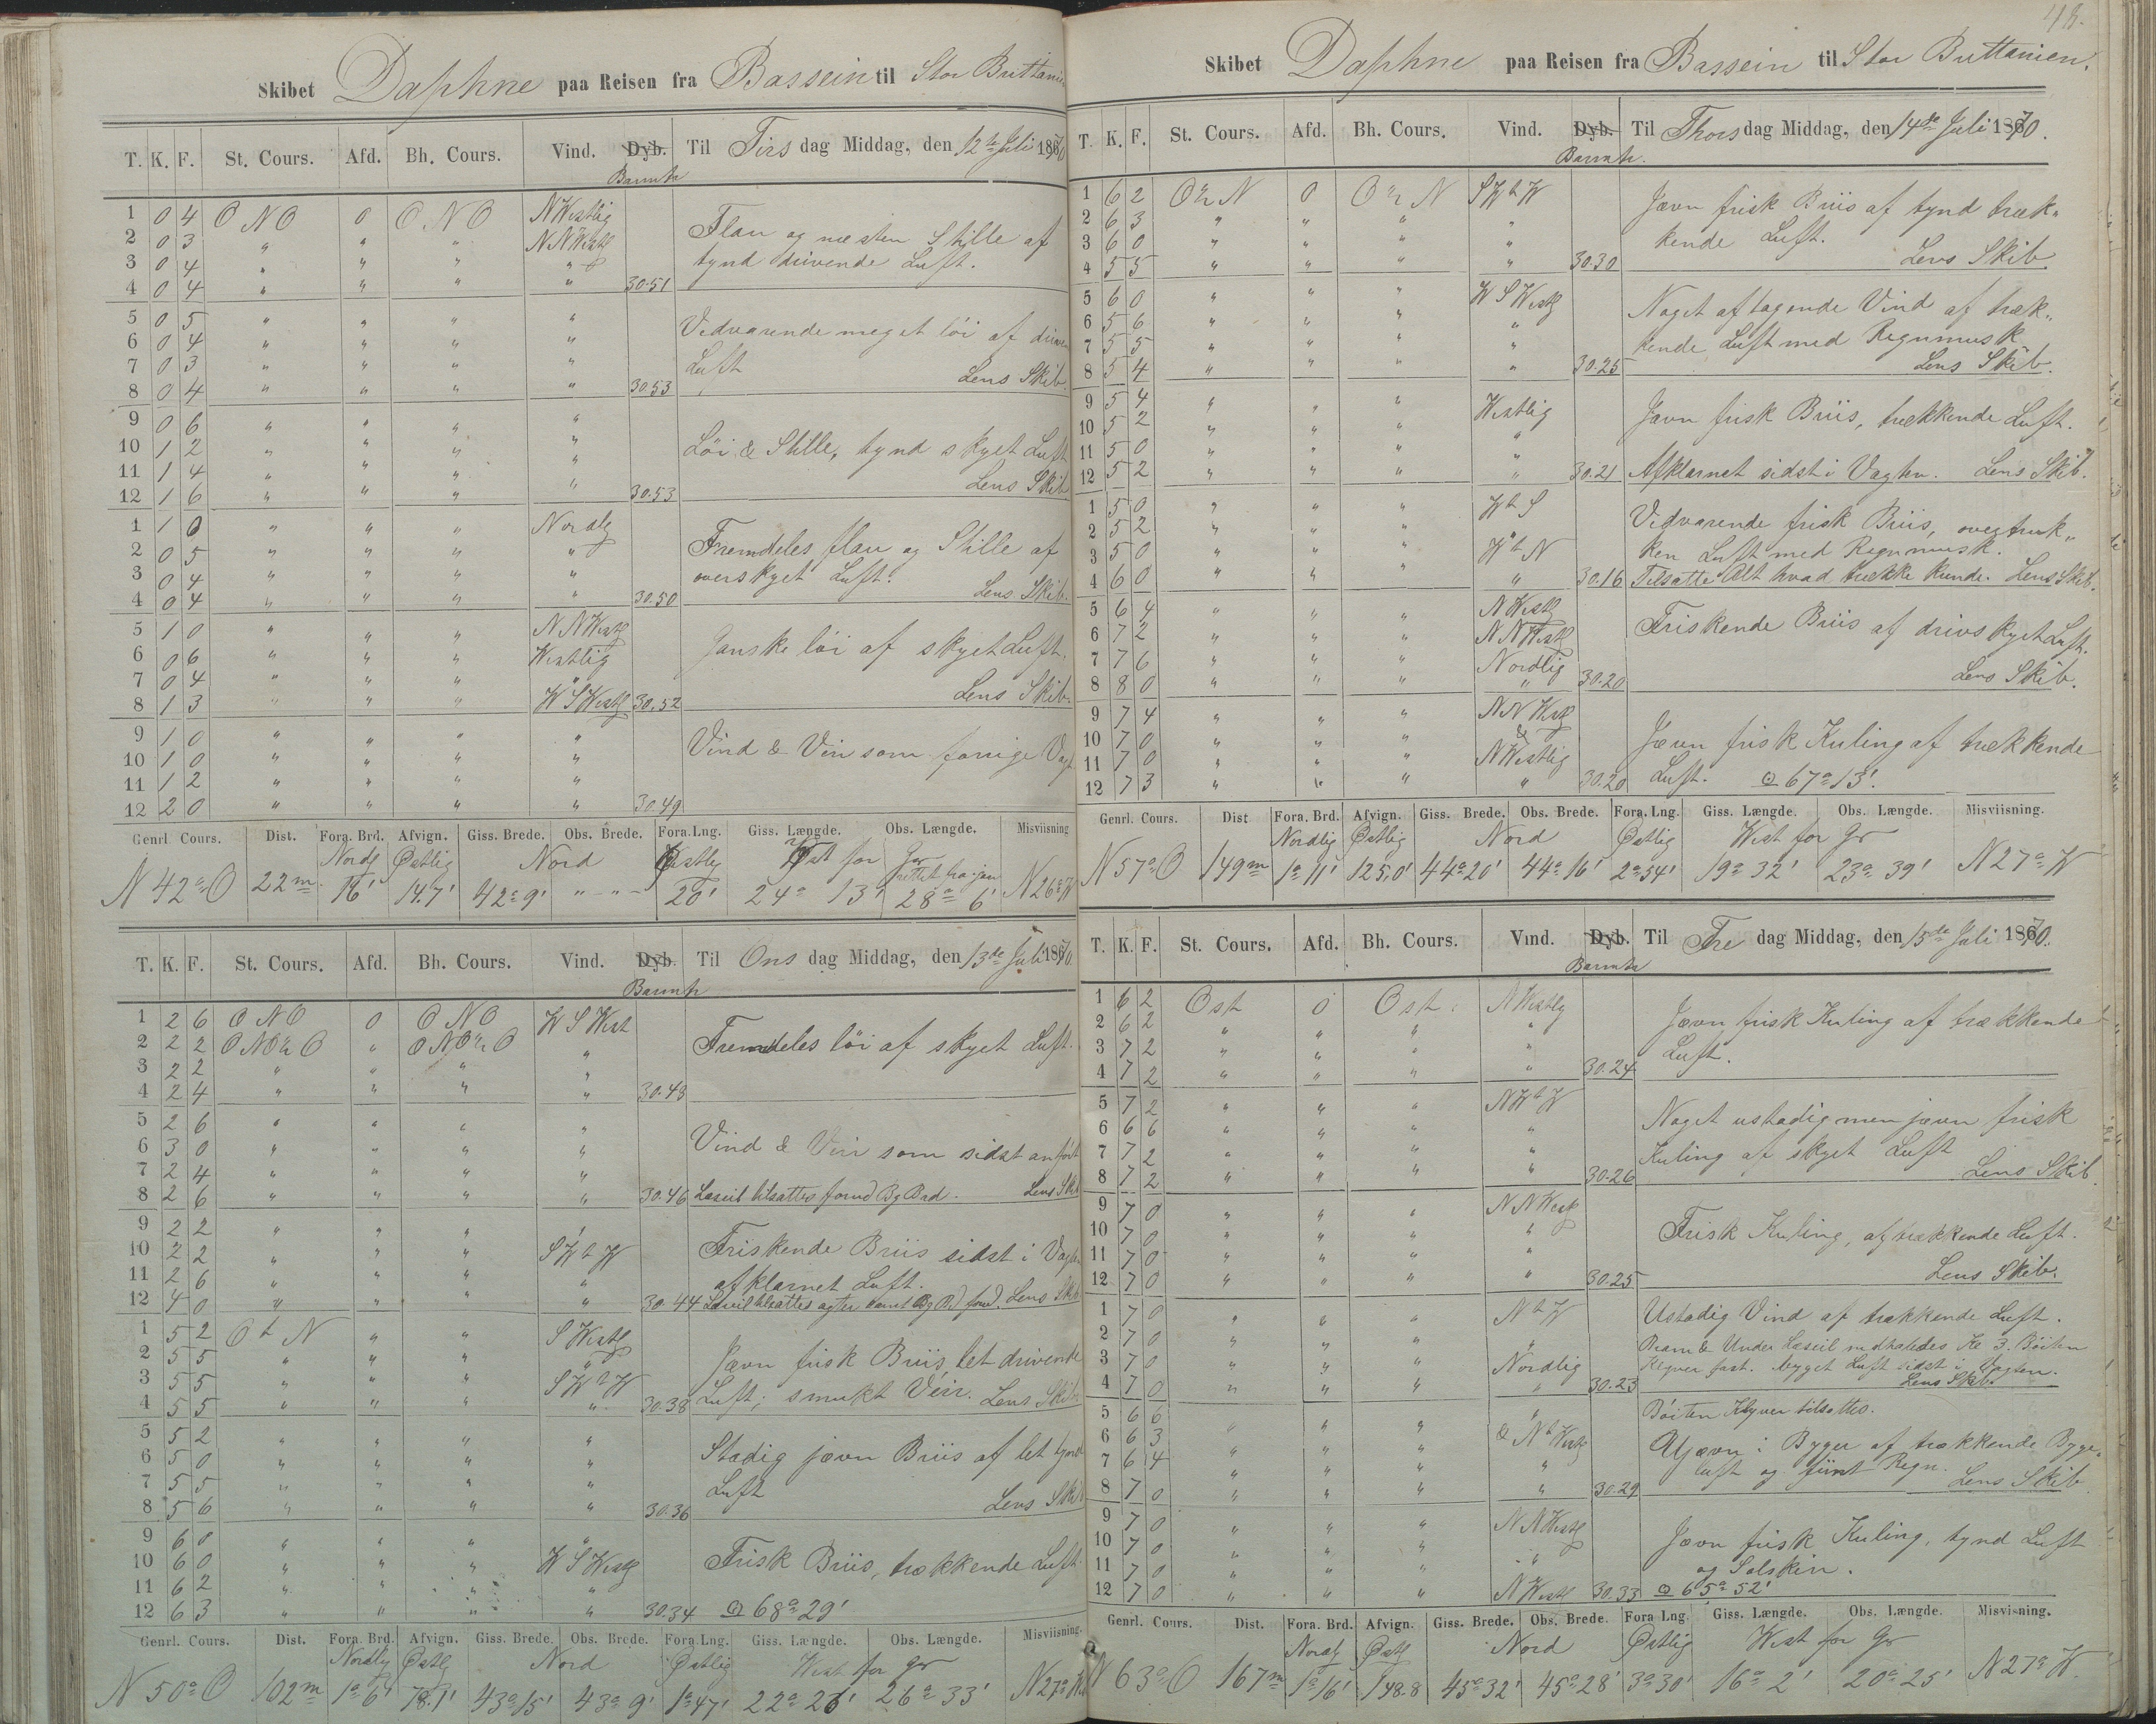 Skibet Daphne paa Reisen fra Bassein til Stor Brittanien
T. K. F. St. Cours. Afd. Bh. Cours. Vind. Dyb. Barmtr Til Tirsdag Middag, den 12te Juli 1870
1 0 4 O N O 0 O N O NWestlig
2 0 3 " " " NNWestl
3 0 4 " " " "
4 0 4 " " " " 30.51
Flau og næsten Stille af
tynd drivende Luft.
5 0 5 " " " "
6 0 4 " " " "
7 0 3 " " " "
8 0 4 " " " " 30.53
Vedvarende meget löi af
Luft Lens Skib.
9 0 6 " " " "
10 1 2 " " " "
11 1 4 " " " "
12 1 6 " " " " 30.53
Löi & Stille, tynd skyet Luft
Lens Skib
1 1 0 " " " Nordlg
2 0 5 " " " "
3 0 4 " " " "
4 0 4 " " " " 30.50
Fremdeles flau og Stille af
overskyet Luft. Lens Skib.
5 1 0 " " " NNWestl
6 0 6 " " " Westlig
7 0 4 " " " "
8 1 3 " " " WSWestl 30.52
Ganske löi af skyet Luft.
Lens Skib.
9 1 0 " " " "
10 1 0 " " " "
11 1 2 " " " "
12 2 0 " " " " 30.49
Vind & Veir som forrige Vagt
Genrl. Cours. Dist. Fora. Brd. Afvign. Giss. Brede. Obs. Brede. Fora. Lng. Giss. Længde. Obs. Længde. Misviisning
Nordl Østlig Nord Østlig Vest for Gr
N 42° O 22m 16' 14.7' 42° 9' " " 20' 24° 13' 28° 6' N 26° W
T. K. F. St. Cours. Afd. Bh. Cours. Vind. Dyb. Barmtr Til Onsdag Middag, den 13de Juli 1870.
1 2 6 O N O 0 O N O W S West
2 2 2 O NO h O " O NO h O "
3 2 2 " " " "
4 2 4 " " " " 30.48
Fremdeles löi af skyet Luft.
5 2 6 " " " "
6 3 0 " " " "
7 2 4 " " " "
8 2 6 " " " " 30.46
Vind & Veir som sidst anført
Læseil tilsattes forud Bg Brd. Lens Skib
9 2 2 " " " "
10 2 2 " " " SWtW
11 2 6 " " " "
12 4 0 " " " " 30.44
Friskende Briis sidst i Vagten
afklarnet Luft.
Læseil tilsattes agter samt Bg Bd forud. Lens Skib
1 5 2 O t N " " S Westl
2 5 5 " " " "
3 5 5 " " " SWtW
4 5 5 " " " " 30.38
Jævn frisk Briis let drivende
Luft; smukt Veir. Lens Skib
5 5 2 " " " "
6 5 0 " " " "
7 5 5 " " " "
8 5 6 " " " " 30.36
Stadig jævn Briis af let tynd
Luft Lens Skib
9 6 0 " " " "
10 6 0 " " " W S Westl
11 6 2 " " " "
12 6 3 " " " " 30.34
Frisk Briis, trækkende Luft.
68° 29'
Genrl. Cours. Dist. Fora. Brd. Afvign. Giss. Brede. Obs. Brede. Fora. Lng. Giss. Længde. Obs. Længde. Misviisning.
Nordlg Østl Nord Østlig West for Gr
N 50° O 102m 1° 6' 78.1' 43° 15' 43° 9' 1° 47' 22° 26' 26° 33' N 27° W
48.
Skibet Daphne paa Reisen fra Bassein til Stor Brittanien.
T. K. F. St. Cours. Afd. Bh. Cours. Vind. Dyb. Barmtr. Til Thorsdag Middag, den 14de Juli 1870.
1 6 2 O h N 0 O h N SWtW
2 6 3 " " " "
3 6 0 " " " "
4 5 5 " " " " 30.30
Jævn frisk Briis af tynd træk-
kende Luft.
Lens Skib.
5 6 0 " " " W S Westl
6 5 6 " " " "
7 5 5 " " " "
8 5 4 " " " " 30.25
Noget aftagende Vind af træk-
kende Luft med Regnmusk
Lens Skib.
9 5 4 " " " Westlig
10 5 2 " " " "
11 5 0 " " " "
12 5 2 " " " " 30.21
Jævn frisk Briis, trækkende Luft.
Afklarnet sidst i Vagten. Lens Skib.
1 5 0 " " " W t S
2 5 2 " " " "
3 5 0 " " " W t N
4 6 0 " " " " 30.16
Vedvarende frisk Briis, overtruk-
ken Luft med Regnmusk.
Tilsatte Alt hvad trække kunde. Lens Skib.
5 6 4 " " " N Westl
6 7 2 " " " N N Westl
7 7 6 " " " Nordlig
8 8 0 " " " " 30.20
Friskende Briis af drivskyet Luft.
Lens Skib.
9 7 4 " " " NN Westl
10 7 0 " " " &
11 7 0 " " " NWestlig
12 7 3 " " " " 30.20
Jævn frisk Kuling af trækkende
Luft. 67° 13'
Genrl. Cours. Dist Fora. Brd. Afvign. Giss. Brede. Obs. Brede. Fora. Lng. Giss. Længde. Obs. Længde. Misviisning.
Nordlig Østlig Nord Østlig West for Gr
N 57° O 149m 1° 11' 125,0' 44° 20' 44° 16' 2° 54' 19° 32' 23° 39' N 27° W
T. K. F. St. Cours. Afd. Bh. Cours. Vind. Dyb. Barmtr Til Fredag Middag, den 15de Juli 1870.
1 6 2 Ost 0 Ost. N Westlg
2 6 2 " " " "
3 7 2 " " " "
4 7 2 " " " " 30.24
Jævn frisk Kuling af trækkende
Luft.
5 7 2 " " " NWtW
6 6 6 " " " "
7 7 2 " " " "
8 7 2 " " " " 30.26
Noget ustadig men jævn frisk
Kuling af skyet Luft
Lens Skib.
9 7 0 " " " N N Westl
10 7 0 " " " "
11 7 0 " " " "
12 7 0 " " " " 30.25
Frisk Kuling, af trækkende Luft.
Lens Skib.
1 7 0 " " " N t W
2 7 0 " " " "
3 7 0 " " " Nordlig
4 7 0 " " " " 30.23
Ustadig Vind af trækkende Luft.
Bram & Under Læseil nedhaledes Kl 3. Röiten
Klyver fast. byget Luft sidst i Vagten.
Lens Skib.
5 6 6 " " " "
6 6 3 " " " & N t Westl
7 6 4 " " " "
8 7 0 " " " " 30.29
Klyver tilsattes.
Ujævn i Byger af trækkende Byge-
luft og fiint Regn. Lens Skib
9 7 0 " " " N N Westl
10 7 0 " " " "
11 7 0 " " " "
12 7 0 " " " N Westl 30.33
Jævn frisk Kuling, tynd Luft
og Solskin.
65° 52'
Genrl. Cours. Dist. Fora. Brd. Afvign. Giss. Brede. Obs. Brede. Fora Lng. Giss. Længde. Obs. Længde. Misvisning.
Nordl Østl Nord Østlig West for Gr
N 63° O 167m 1° 16' 148.8 45° 32' 45° 28' 3° 30' 16° 2' 20° 25' N 27° W.